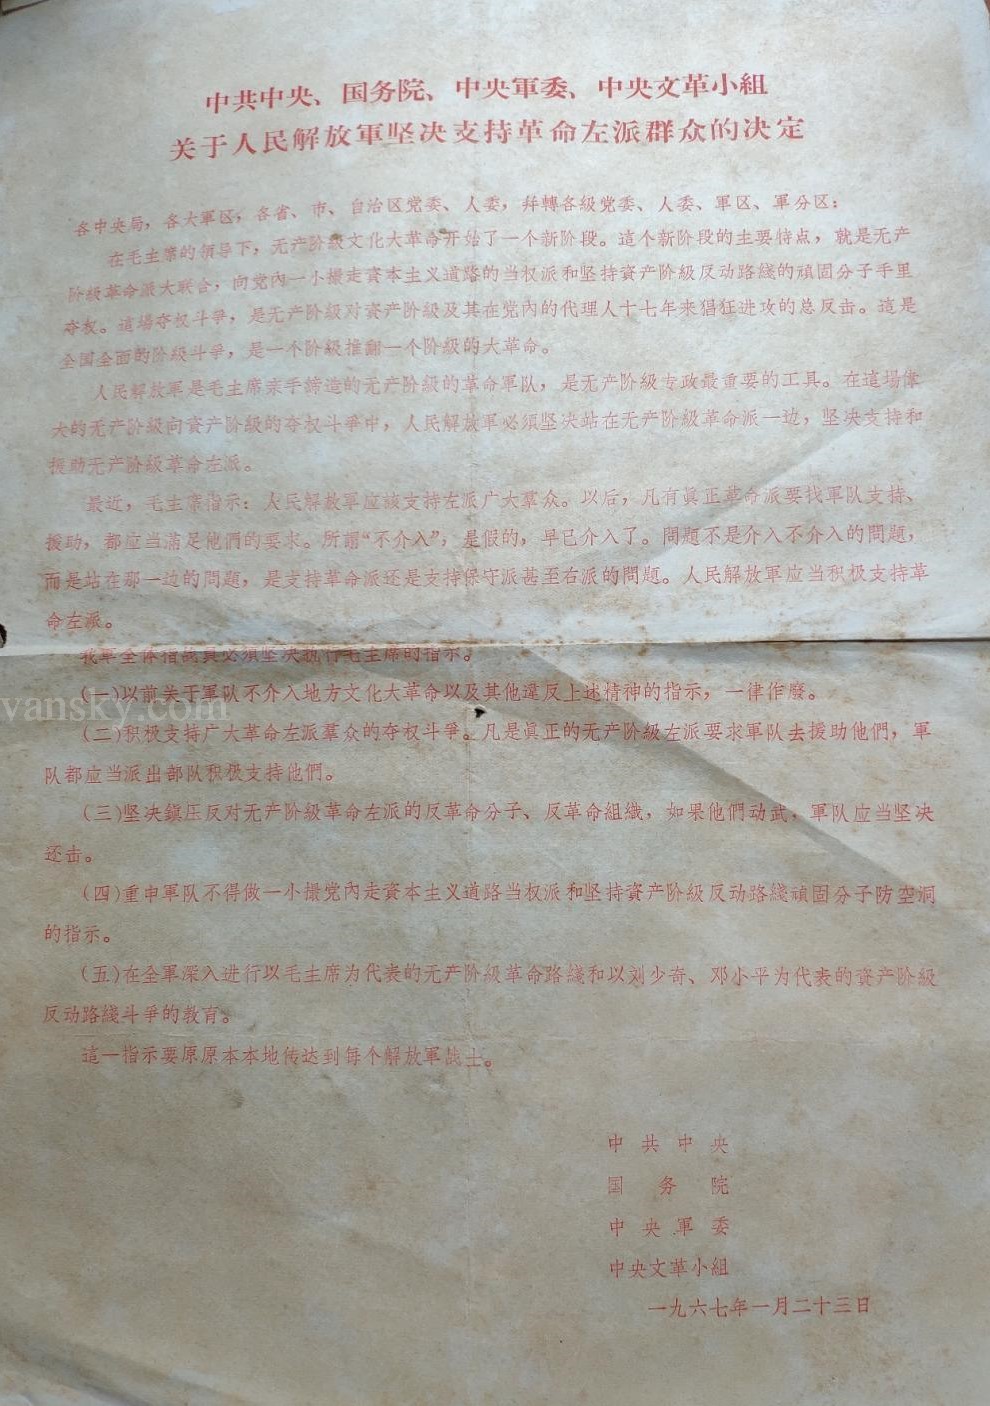 中共中央、国务院、中央軍委、中央文革小組
关于人民解放軍坚决支持革命左派群众的决定
各中央局，各大軍区，各省、市、自治区党委、人委，幷轉各級党委、人委、軍区、軍分区：
在毛主席的領导下，无产阶級文化大革命开始了一个新阶段。這个新阶段的主要特点，就是无产
阶級革命派大联合，向党內一小撮走資本主义道路的当权派和坚持資产阶級反动路綫的頑固分子手里
夺权。這場夺权斗爭，是无产阶級对資产阶級及其在党內的代理人十七年来猖狂进攻的总反击。這是
全国全面的阶級斗爭，是一个阶級推翻一个阶級的大革命。
人民解放軍是毛主席亲手締造的无产阶級的革命軍队，是无产阶級专政最重要的工具。在這場偉
大的无产阶級向資产阶級的夺权斗爭中，人民解放軍必須坚决站在无产阶級革命派一边，坚决支持和
援助无产阶級革命左派。
最近，毛主席指示：人民解放軍应該支持左派广大羣众。以后，凡有眞正革命派要找軍队支持、
援助，都应当滿足他們的要求。所謂“不介入”，是假的，早已介入了。問題不是介入不介入的問題，
而是站在那一边的問題，是支持革命派还是支持保守派甚至右派的問題。人民解放軍应当积极支持革
命左派。
我軍全体指战員必須坚决执行毛主席的指示。
(一)以前关于軍队不介入地方文化大革命以及其他違反上述精神的指示，一律作廢。
vansky.com
(二)积极支持广大革命左派羣众的夺权斗爭。凡是眞正的无产阶級左派要求軍队去援助他們，軍
队都应当派出部队积极支持他們。
(三)坚决鎭压反对无产阶級革命左派的反革命分子、反革命組織，如果他們动武，軍队应当坚决
还击。
(四)重申軍队不得做一小撮党內走資本主义道路当权派和坚持資产阶級反动路綫頑固分子防空洞
的指示。
(五)在全軍深入进行以毛主席为代表的无产阶級革命路綫和以刘少奇、邓小平为代表的資产阶級
反动路綫斗爭的教育。
這一指示要原原本本地传达到每个解放軍战士。
中共中央
国务院
中央軍委
中央文革小組
一九六七年一月二十三日